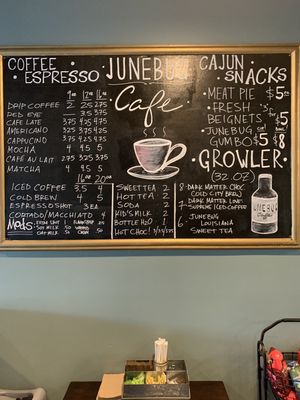 COFFEE
ESPRESSO
JUNEBUG
Cafe
CAJUN
SNACKS
9oz 12oz 16oz
DRIP COFFEE 2 2.25 2.75
RED EYE — 3.5 3.75
CAFE LATE 3.75 4.25 4.75
AMERICANO 3.25 3.75
CAPPUCINO 3.75 4.25 4.75
MOCHA 4 4.5 5
CAFE AU LAIT 2.75 3.25 3.75
MATCHA 4 4.5 5
16oz 20oz
ICED COFFEE 3.5 4
COLD BREW 4 5
ESPRESSO SHOT 3 EA
CORTADO/MACCHIATO 4
Mods:
EXTRA SHOT 1
SOY MILK .50
OAT MILK .50
SWEET TEA 2
HOT TEA 2
SODA 2
KID'S MILK 2
BOTTLE H2O 1
HOT CHOC!
MEAT PIE $5
FRESH
BEIGNETS $5
JUNEBUG
GUMBO $5 $8
GROWLER
(32.OZ)
8 - DARK MATTER CHOC.
(COLD CITY BREW)
7 - DARK MATTER LOVE
SUPREME ICED COFFEE
6 - JUNEBUG
LOUISIANA
SWEET TEA
JUNEBUG